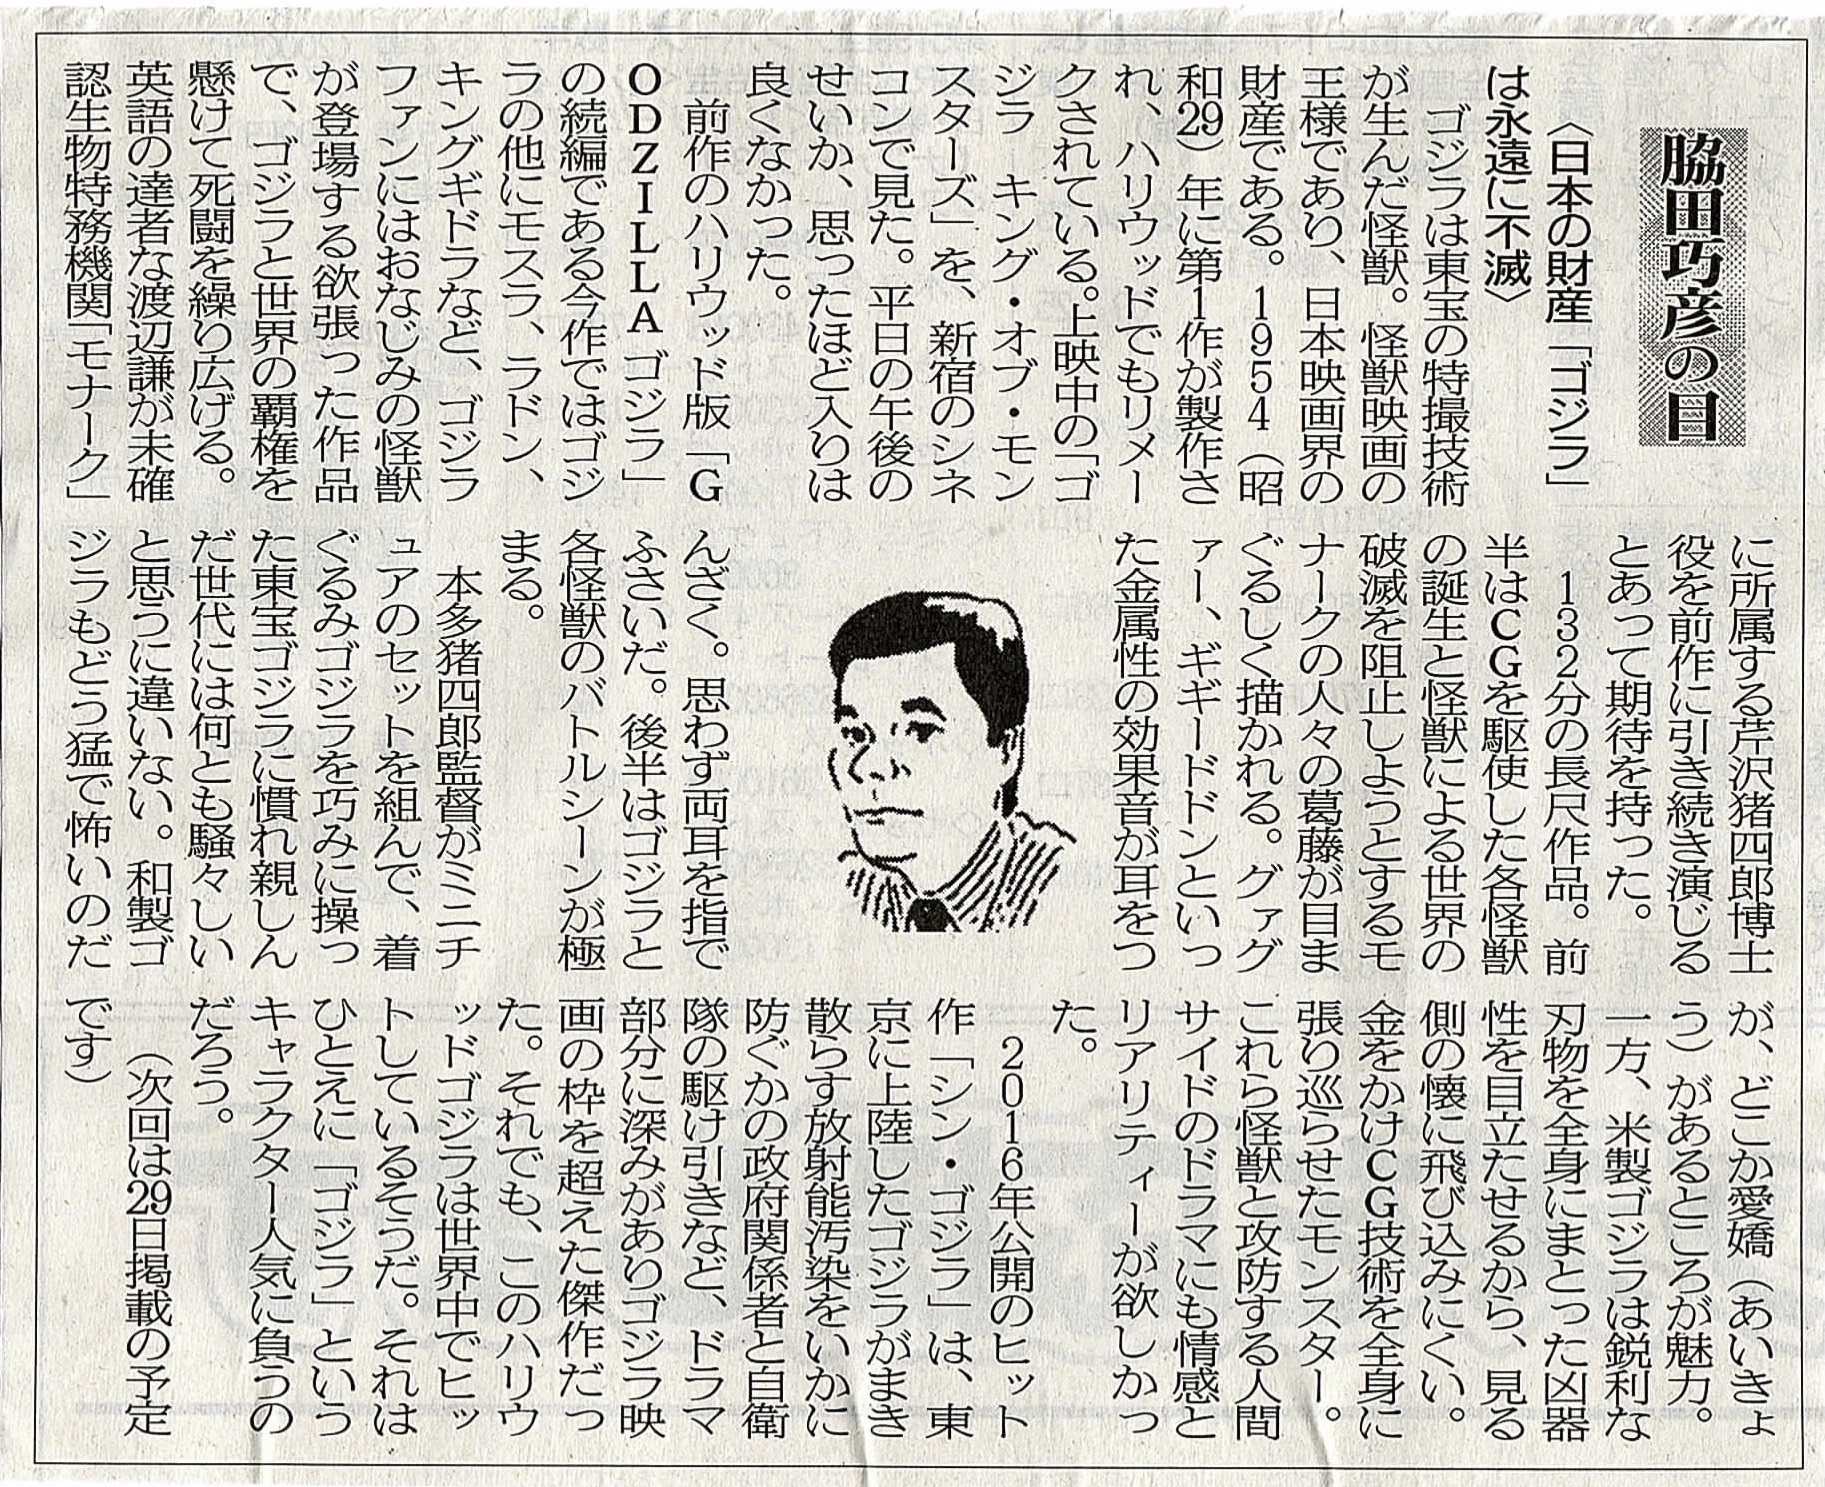 脇田巧彦の目
〈日本の財産「ゴジラ」
は永遠に不滅〉
ゴジラは東宝の特撮技術
が生んだ怪獣。怪獣映画の
王様であり、日本映画界の
財産である。1954（昭
和29）年に第1作が製作さ
れ、ハリウッドでもリメー
クされている。上映中の「ゴ
ジラ　キング・オブ・モン
スターズ」を、新宿のシネ
コンで見た。平日の午後の
せいか、思ったほど入りは
良くなかった。
前作のハリウッド版「G
ODZILLA ゴジラ」
の続編である今作ではゴジ
ラの他にモスラ、ラドン、
キングギドラなど、ゴジラ
ファンにはおなじみの怪獣
が登場する欲張った作品
で、ゴジラと世界の覇権を
懸けて死闘を繰り広げる。
英語の達者な渡辺謙が未確
認生物特務機関「モナーク」
に所属する芹沢猪四郎博士
役を前作に引き続き演じる
とあって期待を持った。
132分の長尺作品。前
半はCGを駆使した各怪獣
の誕生と怪獣による世界の
破滅を阻止しようとするモ
ナークの人々の葛藤が目ま
ぐるしく描かれる。グァグ
ァー、ギギードドンといっ
た金属性の効果音が耳をつ
んざく。思わず両耳を指で
ふさいだ。後半はゴジラと
各怪獣のバトルシーンが極
まる。
本多猪四郎監督がミニチ
ュアのセットを組んで、着
ぐるみゴジラを巧みに操っ
た東宝ゴジラに慣れ親しん
だ世代には何とも騒々しい
と思うに違いない。和製ゴ
ジラもどう猛で怖いのだ
が、どこか愛嬌（あいきょ
う）があるところが魅力。
一方、米製ゴジラは鋭利な
刃物を全身にまとった凶器
性を目立たせるから、見る
側の懐に飛び込みにくい。
金をかけCG技術を全身に
張り巡らせたモンスター。
これら怪獣と攻防する人間
サイドのドラマにも情感と
リアリティーが欲しかっ
た。
2016年公開のヒット
作「シン・ゴジラ」は、東
京に上陸したゴジラがまき
散らす放射能汚染をいかに
防ぐかの政府関係者と自衛
隊の駆け引きなど、ドラマ
部分に深みがありゴジラ映
画の枠を超えた傑作だっ
た。それでも、このハリウ
ッドゴジラは世界中でヒッ
トしているそうだ。それは
ひとえに「ゴジラ」という
キャラクター人気に負うの
だろう。
（次回は29日掲載の予定
です）